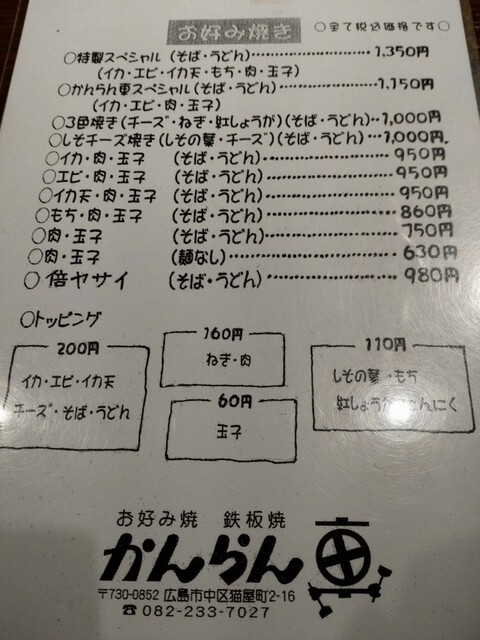 お好み焼き ○全て税込価格です○
○特製スペシャル（そば・うどん）‥‥‥‥‥‥1,350円
（イカ・エビ・イカ天・もち・肉・玉子）
○かんらん車スペシャル（そば・うどん）‥‥‥‥‥1,150円
（イカ・エビ・肉・玉子）
○3色焼き（チーズ・ねぎ・紅しょうが）（そば・うどん）‥1,000円
○しそチーズ焼き（しその葉・チーズ）（そば・うどん）‥1,000円
○イカ・肉・玉子 （そば・うどん）‥‥‥‥‥‥‥950円
○エビ・肉・玉子 （そば・うどん）‥‥‥‥‥‥‥950円
○イカ天・肉・玉子 （そば・うどん）‥‥‥‥‥‥‥950円
○もち・肉・玉子 （そば・うどん）‥‥‥‥‥‥‥860円
○肉・玉子 （そば・うどん）‥‥‥‥‥‥‥750円
○肉・玉子 （麺なし）‥‥‥‥‥‥‥630円
○倍ヤサイ （そば・うどん）‥‥‥‥‥‥‥980円
○トッピング
200円
イカ・エビ・イカ天
チーズ・そば・うどん
160円
ねぎ・肉
60円
玉子
110円
しその葉・もち
紅しょうが・にんにく
お好み焼 鉄板焼
かんらん車
〒730-0852 広島市中区猫屋町2-16
☎082-233-7027